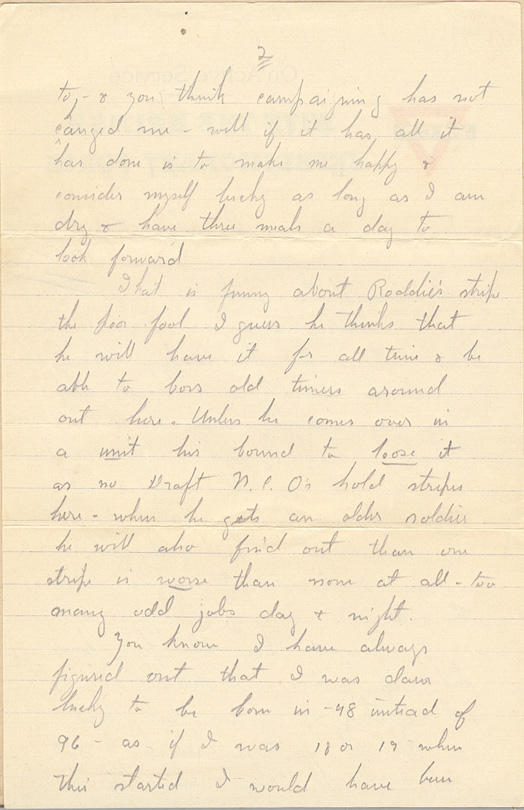 2
to, - & you think campaigning has not
canged me - well if it has, all it
has done is to make me happy &
consider myself lucky as long as I am
dry & have three meals a day to
look forward
That is funny about Roddie's stripe
the poor fool I guess he thinks that
he will have it for all time & be
able to boss old timers around
out here. Unless he comes over in
a unit his bound to loose it
as no Draft N.C.O's hold stripes
here - when he gets an older soldier
he will also find out than one
stripe is worse than none at all - two
many odd jobs day & night.
You know I have always
figured out that I was darn
lucky to be born in -98 instead of
96 - as if I was 18 or 19 when
this started I would have been